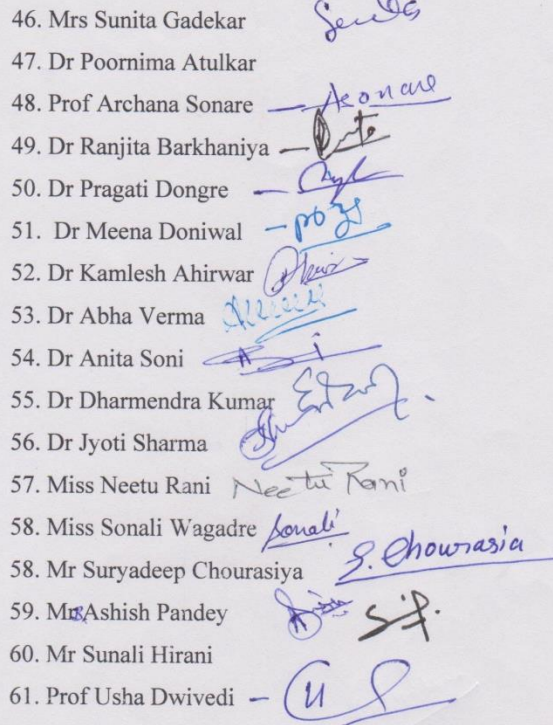 46. Mrs Sunita Gadekar
47. Dr Poornima Atulkar
48. Prof Archana Sonare — Asonare
49. Dr Ranjita Barkhaniya —
50. Dr Pragati Dongre —
51. Dr Meena Doniwal —
52. Dr Kamlesh Ahirwar
53. Dr Abha Verma
54. Dr Anita Soni
55. Dr Dharmendra Kumar
56. Dr Jyoti Sharma
57. Miss Neetu Rani Neetu Rani
58. Miss Sonali Wagadre Sonali
58. Mr Suryadeep Chourasiya S. Chourasia
59. Mrs Ashish Pandey
60. Mr Sunali Hirani
61. Prof Usha Dwivedi —